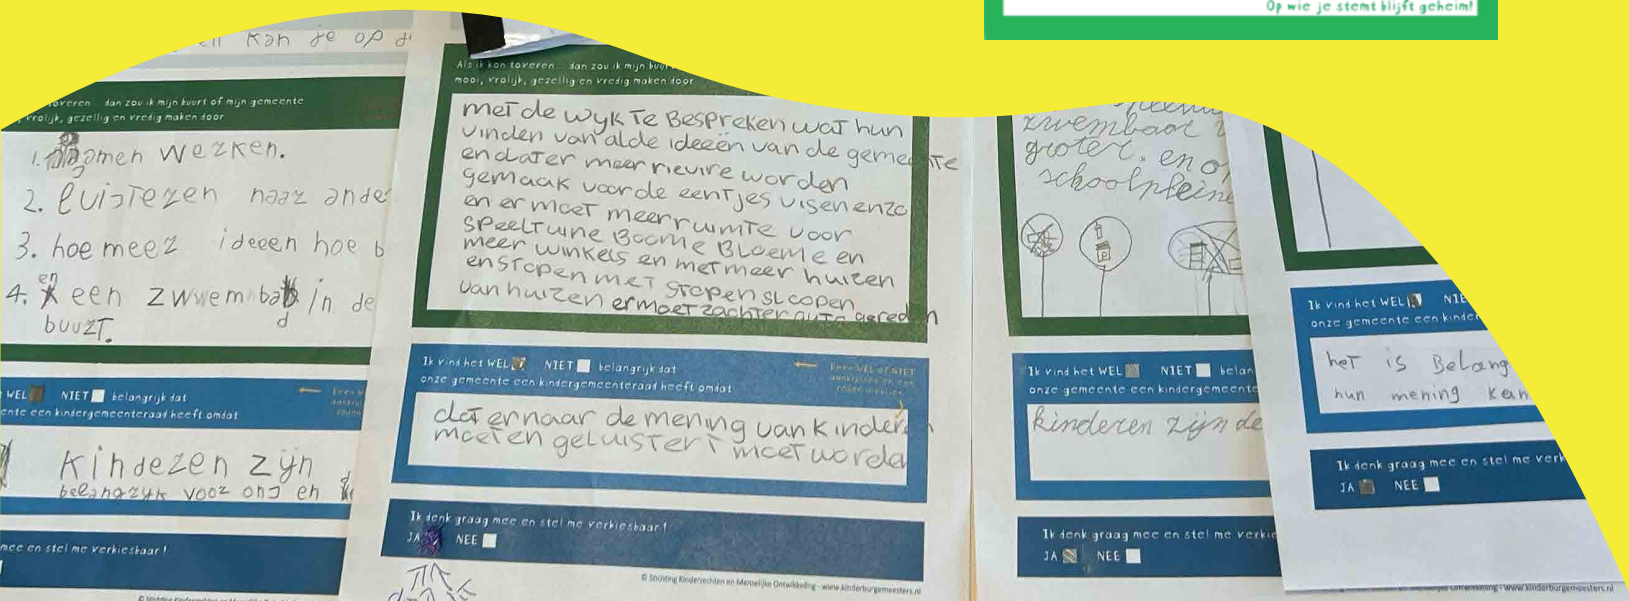 Op wie je stemt blijft geheim!
kan je op
toveren... dan zou ik mijn buurt of mijn gemeente
vrolijk, gezellig en vredig maken door
1. bomen werken.
2. luisteren naar ande
3. hoe meer ideeen hoe b
en
4. een zwwembad in de
d
buurt.
WEL NIET belangrijk dat
ente een kindergemeenteraad heeft omdat
kinderen zijn
belangrijk voor ons en
mee en stel me verkiesbaar!
Als ik kon toveren... dan zou ik mijn buurt
mooi, vrolijk, gezellig en vredig maken door
met de wyk te Bespreken wat hun
vinden van alde ideeën van de gemeente
en dater meer rievire worden
gemaak voor de eentjes visen enzo
en er moet meer ruimte voor
speeltuine Boome Bloeme en
meer winkels en met meer huizen
en stopen met stopen sloopen
van huizen er moet zachter auto gereden
Ik vind het WEL NIET belangrijk dat
onze gemeente een kindergemeenteraad heeft omdat
dat er naar de mening van kinderen
moeten geluistert moet worden
Ik denk graag mee en stel me verkiesbaar!
JA NEE
© Stichting Kinderrechten en Menselijke Ontwikkeling - www.kinderburgemeesters.nl
zwembaat
groter. en o
schoolpleine
Ik vind het WEL NIET belan
onze gemeente een kindergemeente
kinderen zijn de
Ik denk graag mee en stel me verkie
JA NEE
Ik vind het WEL NIE
onze gemeente een kinder
het is Belang
hun mening kan
Ik denk graag mee en stel me verk
JA NEE
www.kinderburgemeesters.nl